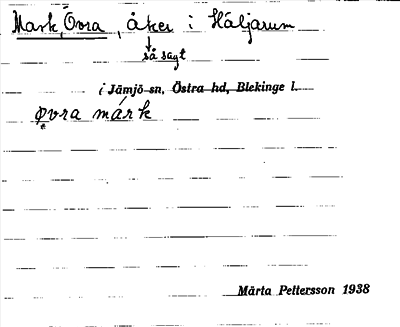 Mark, Övra, åker i Häljarum
så sagt
i Jämjö sn, Östra hd, Blekinge l.
øvra márk
Märta Pettersson 1938